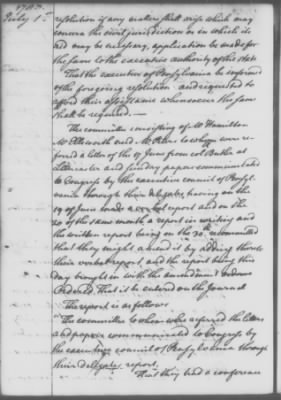 1783.
July 1st
resolution if any matter shall arise which may
concern the civil jurisdiction or in which its
aid may be necessary, application be made for
the same to the executive authority of this state
That the executive of Pensylvania be informed
of the foregoing resolution and requested to
afford their assistance whensoever the same
shall be required.—
The committee consisting of Mr Hamilton
Mr Ellsworth and Mr Peters to whom were re-
ferred a letter of the 17 June from col Butler at
Lancaster and sundry papers communicated
to Congress by the executive council of Pensyl-
vania through their delegates, having on the
19 of June made a verbal report and on the
20 of the same month a report in writing and
the written report being on the 30th recommitted
that they might amend it by adding thereto
their verbal report, and the report being this
day brought in with the amendment
Ordered That it be entered on the Journal
The report is as follows
"The committee to whom were referred the letters
and papers communicated to Congress by
the executive council of Pensylvania through
their delegates, report,
That they had a conference